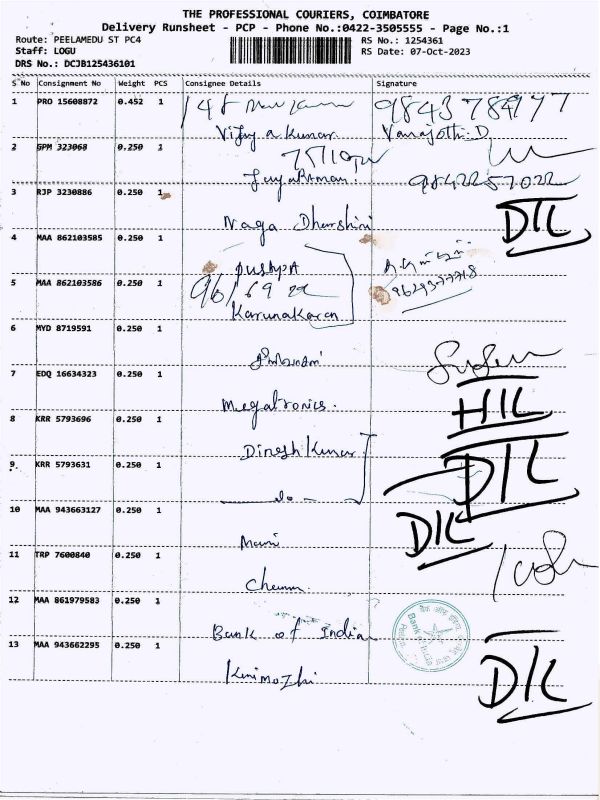 THE PROFESSIONAL COURIERS, COIMBATORE
Delivery Runsheet - PCP - Phone No.:0422-3505555 - Page No.:1
Route: PEELAMEDU ST PC4
RS No.: 1254361
Staff: LOGU
RS Date: 07-Oct-2023
DRS No.: DCJB125436101
S No Consignment No Weight PCS Consignee Details Signature
1 PRO 15608872 0.452 1
Vijaya Kumar. Vanajothi.D
2 GPM 323068 0.250 1
Jayaraman. 9842257022
3 RJP 3230886 0.250 1
Naga Dharshini DIL
4 MAA 862103585 0.250 1
pushpA
5 MAA 862103586 0.250 1
Karunakaran
6 MYD 8719591 0.250 1
7 EDQ 16634323 0.250 1
Megatronics. HIL
8 KRR 5793696 0.250 1
Dinesh Kumar
9 KRR 5793631 0.250 1
do DIL
10 MAA 943663127 0.250 1
Mani DIL
11 TRP 7600840 0.250 1
12 MAA 861979583 0.250 1
Bank of India
13 MAA 943662295 0.250 1
Kanimozhi DIL